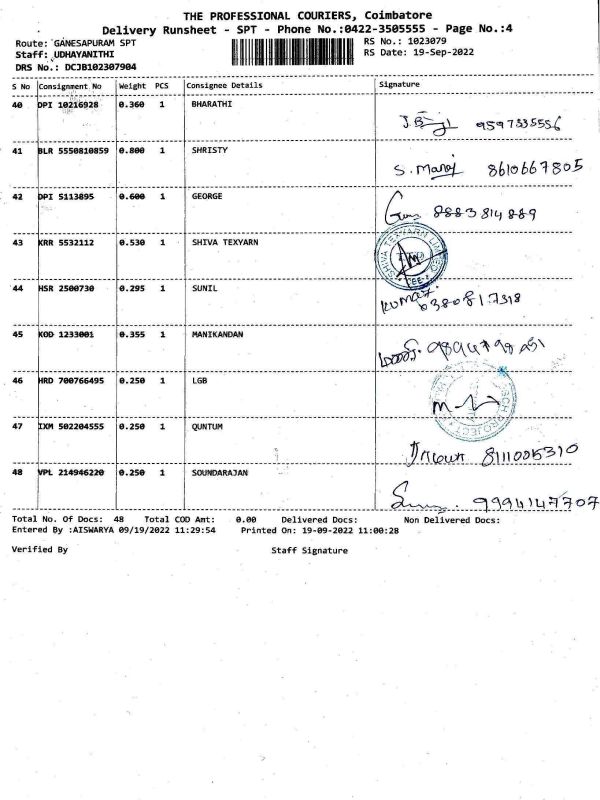 THE PROFESSIONAL COURIERS, Coimbatore
Delivery Runsheet - SPT - Phone No.:0422-3505555 - Page No.:4
Route: GANESAPURAM SPT RS No.: 1023079
Staff: UDHAYANITHI RS Date: 19-Sep-2022
DRS No.: DCJB102307904
S No Consignment No Weight PCS Consignee Details Signature
40 DPI 10216928 0.360 1 BHARATHI
9597335556
41 BLR 5550810859 0.800 1 SHRISTY
S. Manoj 8610667805
42 DPI 5113895 0.600 1 GEORGE
8883814889
43 KRR 5532112 0.530 1 SHIVA TEXYARN
SHIVA TEXYARN LIMITED
44 HSR 2500730 0.295 1 SUNIL
Kumar. 6380817318
45 KOD 1233001 0.355 1 MANIKANDAN
46 HRD 700766495 0.250 1 LGB
47 IXM 502204555 0.250 1 QUNTUM
8111005310
48 VPL 214946220 0.250 1 SOUNDARAJAN
9994147707
Total No. Of Docs: 48 Total COD Amt: 0.00 Delivered Docs: Non Delivered Docs:
Entered By :AISWARYA 09/19/2022 11:29:54 Printed On: 19-09-2022 11:00:28
Verified By Staff Signature